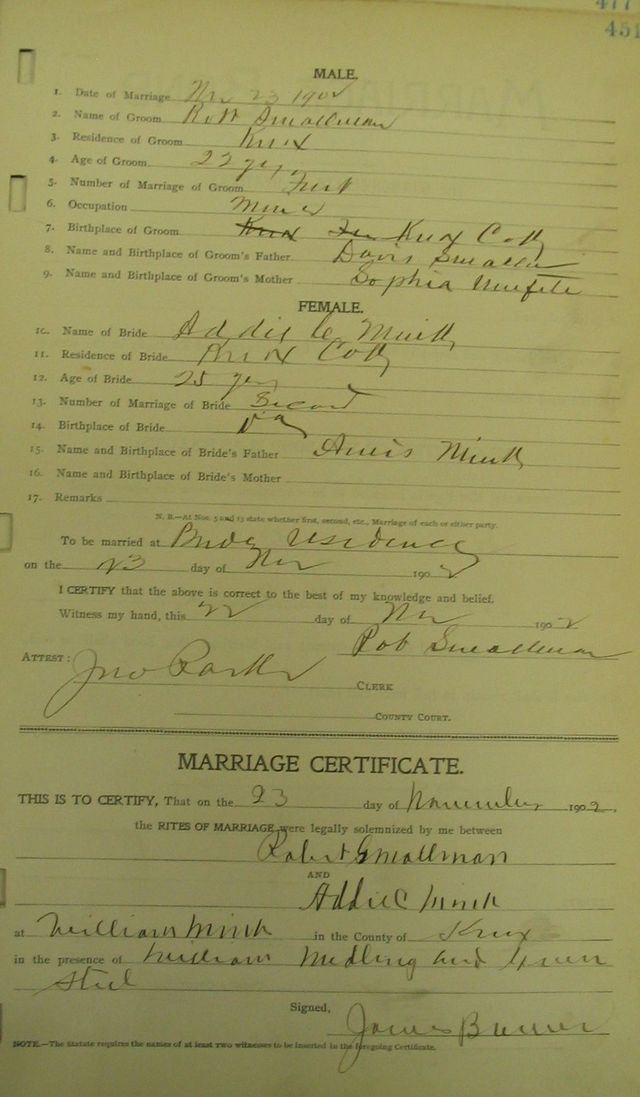 477
451
MALE.
1. Date of Marriage Nov 23 1902
2. Name of Groom Robt Smallman
3. Residence of Groom Knox
4. Age of Groom 22 yrs
5. Number of Marriage of Groom First
6. Occupation Miner
7. Birthplace of Groom Knox Knox Coty
8. Name and Birthplace of Groom's Father Davis Smallm
9. Name and Birthplace of Groom's Mother Sophia
FEMALE.
10. Name of Bride Addie C. Mink
11. Residence of Bride Knox Coty
12. Age of Bride 25 yrs
13. Number of Marriage of Bride Second
14. Birthplace of Bride Va
15. Name and Birthplace of Bride's Father Mink
16. Name and Birthplace of Bride's Mother
17. Remarks
N. B.—At Nos. 5 and 13 state whether first, second, etc., Marriage of each or either party.
To be married at Brides residence
on the 23 day of Nov 1902
I CERTIFY that the above is correct to the best of my knowledge and belief.
Witness my hand, this 22 day of Nov 1902
Rob Smallman
ATTEST: Jno Parker
CLERK
COUNTY COURT.
MARRIAGE CERTIFICATE.
THIS IS TO CERTIFY, That on the 23 day of November 1902,
the RITES OF MARRIAGE were legally solemnized by me between
Robert Smallman
AND
Addie C Mink
at William Mink in the County of Knox
in the presence of William Medling and Green
Steel
Signed,
James
NOTE.—The Statute requires the names of at least two witnesses to be inserted in the foregoing Certificate.